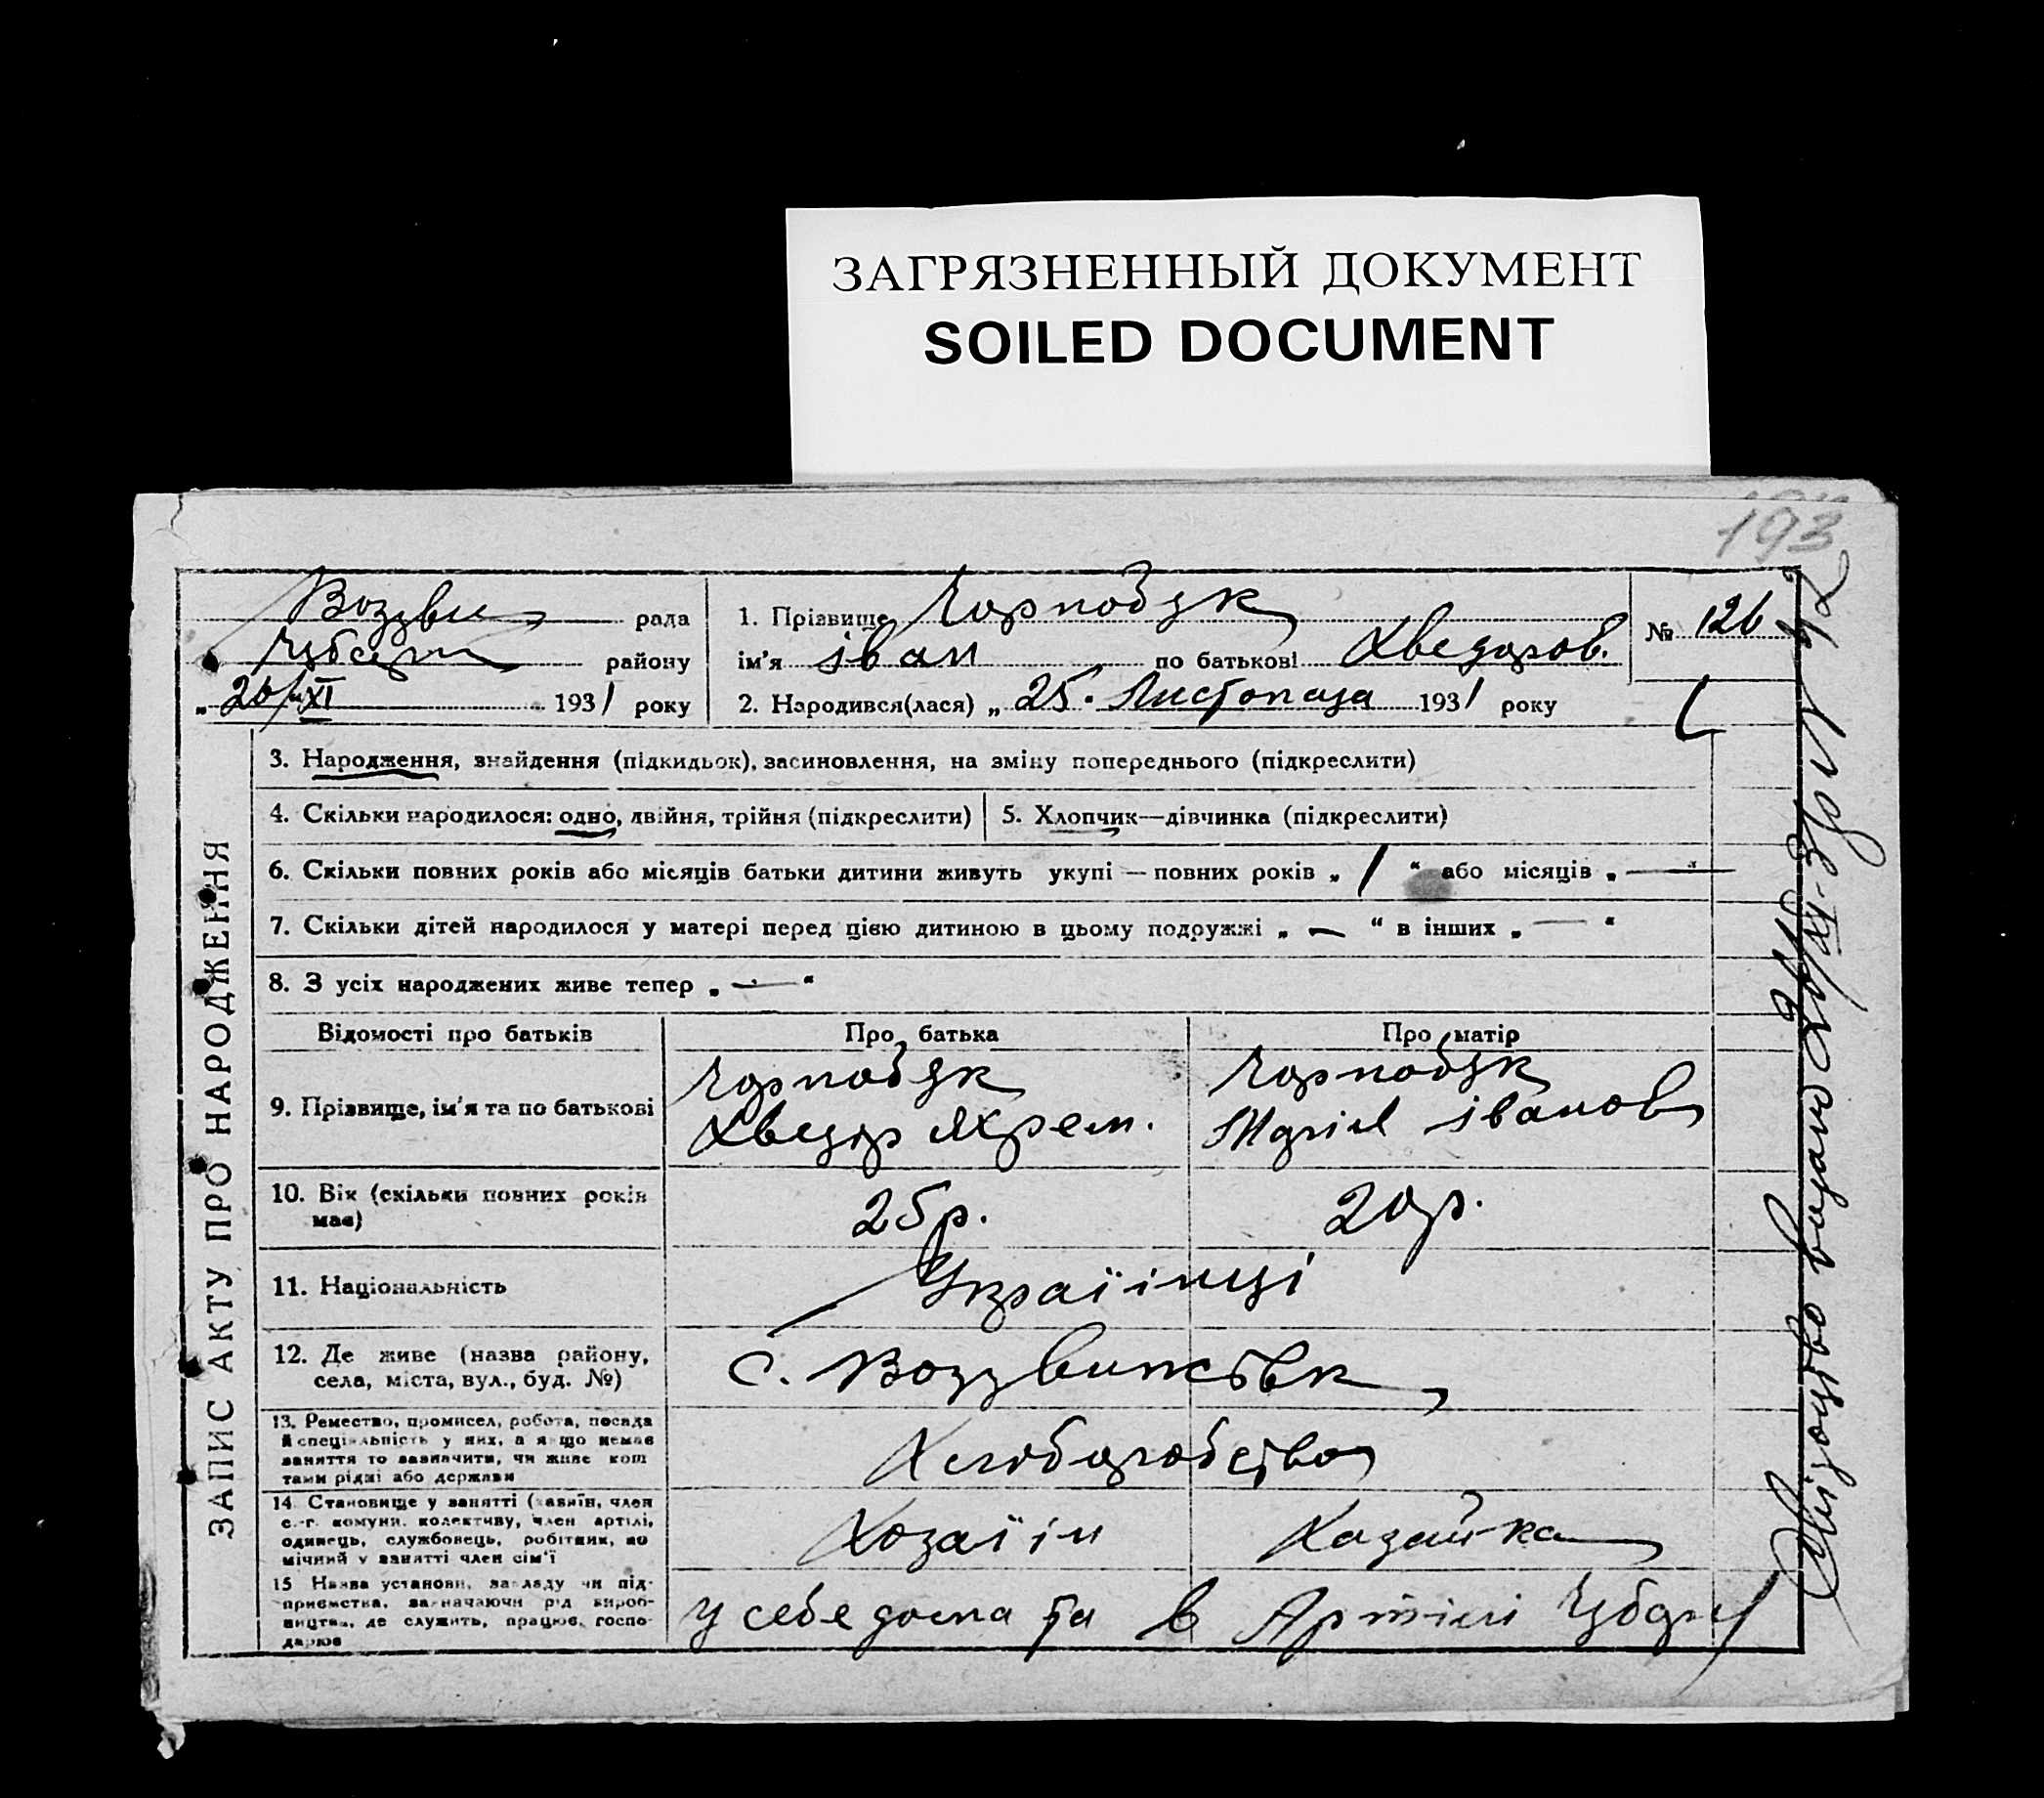 ЗАГРЯЗНЕННЫЙ ДОКУМЕНТ
SOILED DOCUMENT
193
рада
району
„ 26/XI 1931 року
1. Прізвище
ім'я Іван по батькові Хведоров.
2. Народився(лася) „ 25. Листопада 1931 року
№ 126
ЗАПИС АКТУ ПРО НАРОДЖЕННЯ
3. Народження, знайдення (підкидьок), засиновлення, на зміну попереднього (підкреслити)
4. Скільки народилося: одно, двійня, трійня (підкреслити)
5. Хлопчик—дівчинка (підкреслити)
6. Скільки повних років або місяців батьки дитини живуть укупі — повних років „ 1 “ або місяців „ — “
7. Скільки дітей народилося у матері перед цією дитиною в цьому подружжі „ — “ в інших „ — “
8. З усіх народжених живе тепер „ — “
Відомості про батьків
Про батька
Про матір
9. Прізвище, ім'я та по батькові
Хведор Яхрем.
Марія Іванов
10. Вік (скільки повних років
має)
25 р.
20 р.
11. Національність
Україінці
12. Де живе (назва району,
села, міста, вул., буд. №)
с. Воздвиженськ
13. Ремество, промисел, робота, посада
й спеціяльність у них, а якщо немає
заняття то зазначити, чи живе кош
тами рідні або держави
Хліборобство
14. Становище у занятті (хазяїн, член
с.-г. комуни, колективу, член артілі,
одинець, службовець, робітник, по
мічний у занятті член сім'ї
Хозаїін
Хазяйка
15 Назва установи, закладу чи під-
приємства, зазначаючи рід вироб-
ництва, де служить, працює, госпо-
дарює
у себе дома та в Артілі
Свідоцтво видано 26/XI-31 р.